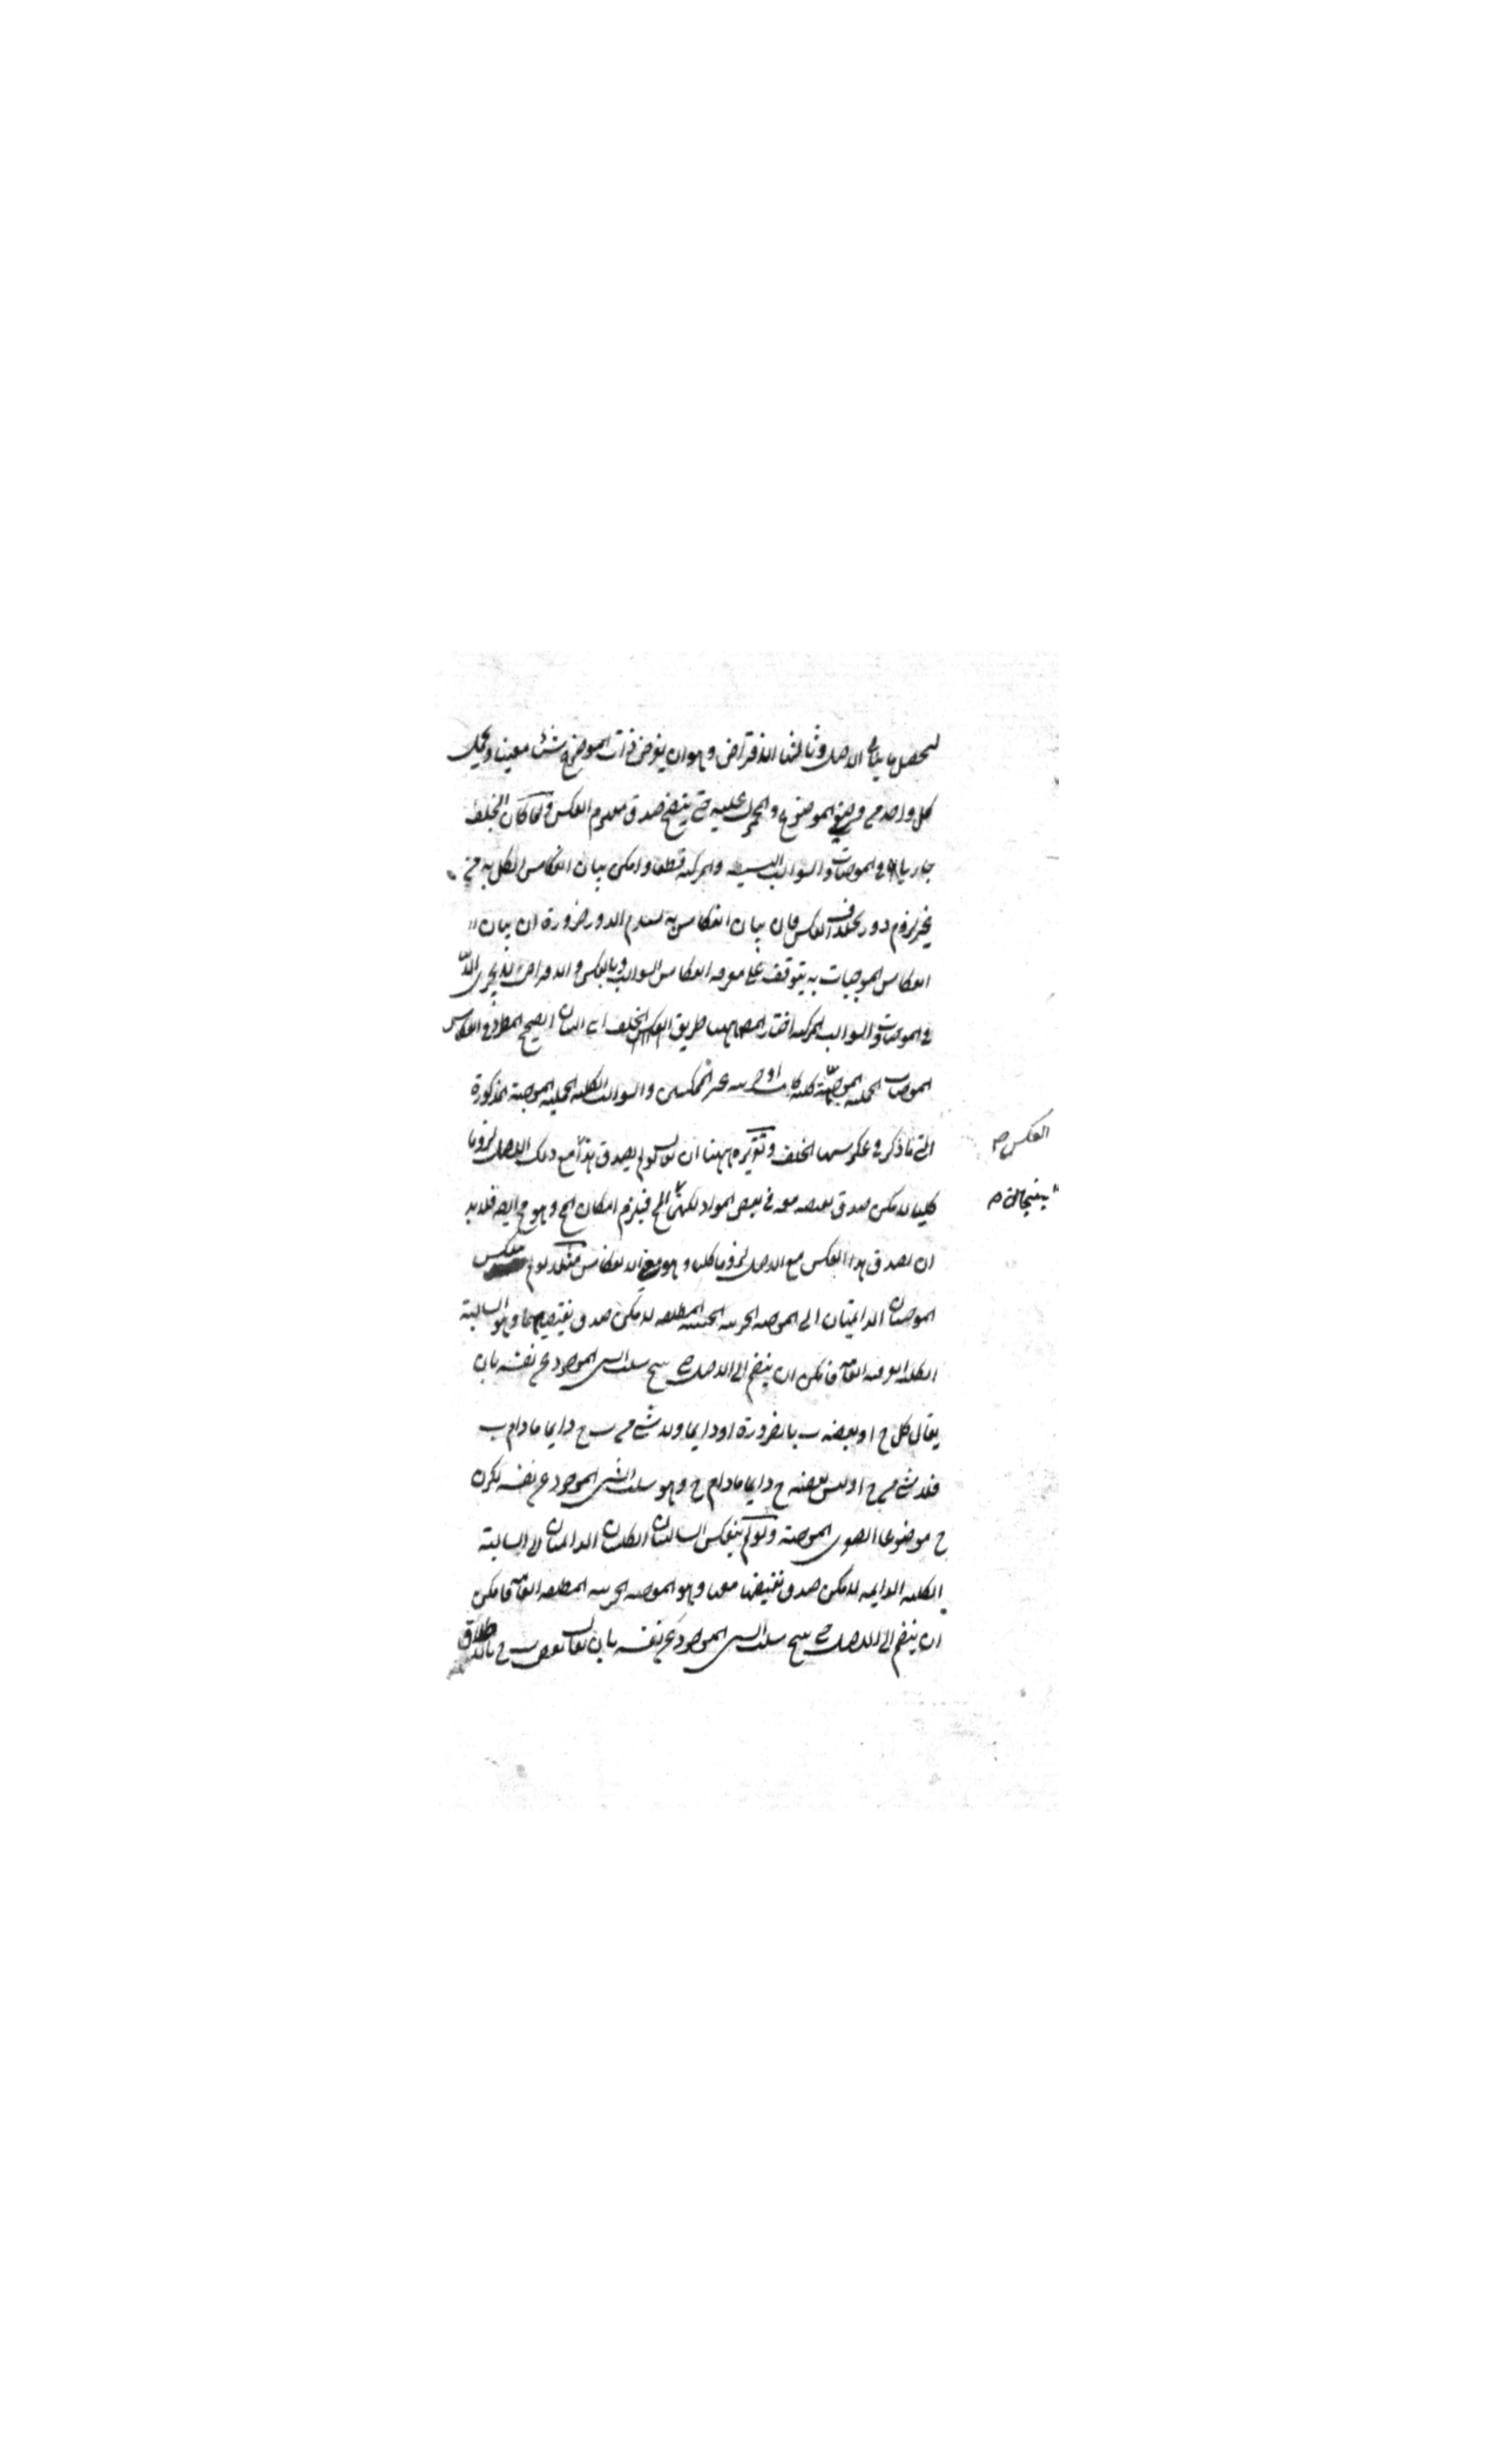 ليحصل ما ينافي الاصل وثالثها الافتراض وهو ان يفرض ذات الموضوع شيئا معينا ويحمل
كل واحد من وصفي الموضوع والمحمول عليه حتى يتضح صدق مفهوم العكس ولما كان الخلف
جاريا في الموجبات والسوالب البسيطة والمركبة قطعا وامكن بيان انعكاس الكل به من
غير لزوم دور بخلاف العكس فان بيان انعكاس به يستلزم الدور ضرورة ان بيان
انعكاس الموجبات به يتوقف على معرفة انعكاس السوالب وبالعكس والافتراض لا يجري الا
في الموجبات والسوالب المركبة اختار المص ههنا طريق الخلف في انعكاس
الموجبات الحملية كلية كانت او جزئية غير الممكنتين والسوالب الكلية الحملية الموجهة المذكورة
الى ما ذكر في عكوسها الخلف وتقريره ههنا ان يقال لو لم يصدق هذا مع ذلك الاصل لزوما
العكس صح
كليا لامكن صدق نقيضه معه في بعض المواد لكنه مح فيلزم امكان المح وهو مح ايضا فلا بد
ان يصدق هذا العكس مع الاصل لزوما كليا وهو معنى الانعكاس مثلا لو لم ينعكس
الموجبتان الدائمتان الى الموجبة الجزئية الحينية المطلقة لامكن صدق نقيضها معهما وهو السالبة
الكلية العرفية العامة فامكن ان ينضم الى الاصل حتى ينتج سلب الشيء الموجود عن نفسه بان
يقال كل ج او بعضه ب بالضرورة او دايما ولا شيء من ب ج دايما مادام ب
فلا شيء من ج او ليس بعضه ج دايما مادام ج وهو سلب الشيء الموجود عن نفسه لكون
ج موضوعا لصغرى الموجبة ولو لم ينعكس السالبتان الكليتان الدائمتان الى السالبة
الكلية الدايمة لامكن صدق نقيضها معها وهو الموجبة الجزئية المطلقة العامة فامكن
ان ينضم الى الاصل حتى ينتج سلب الشيء الموجود عن نفسه بان يقال بعض ب ج بالاطلاق